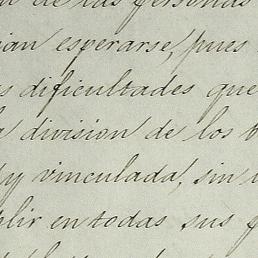 de las personas
esperarse, pues
dificultades que
division de los
y vinculada, sin
en todas sus